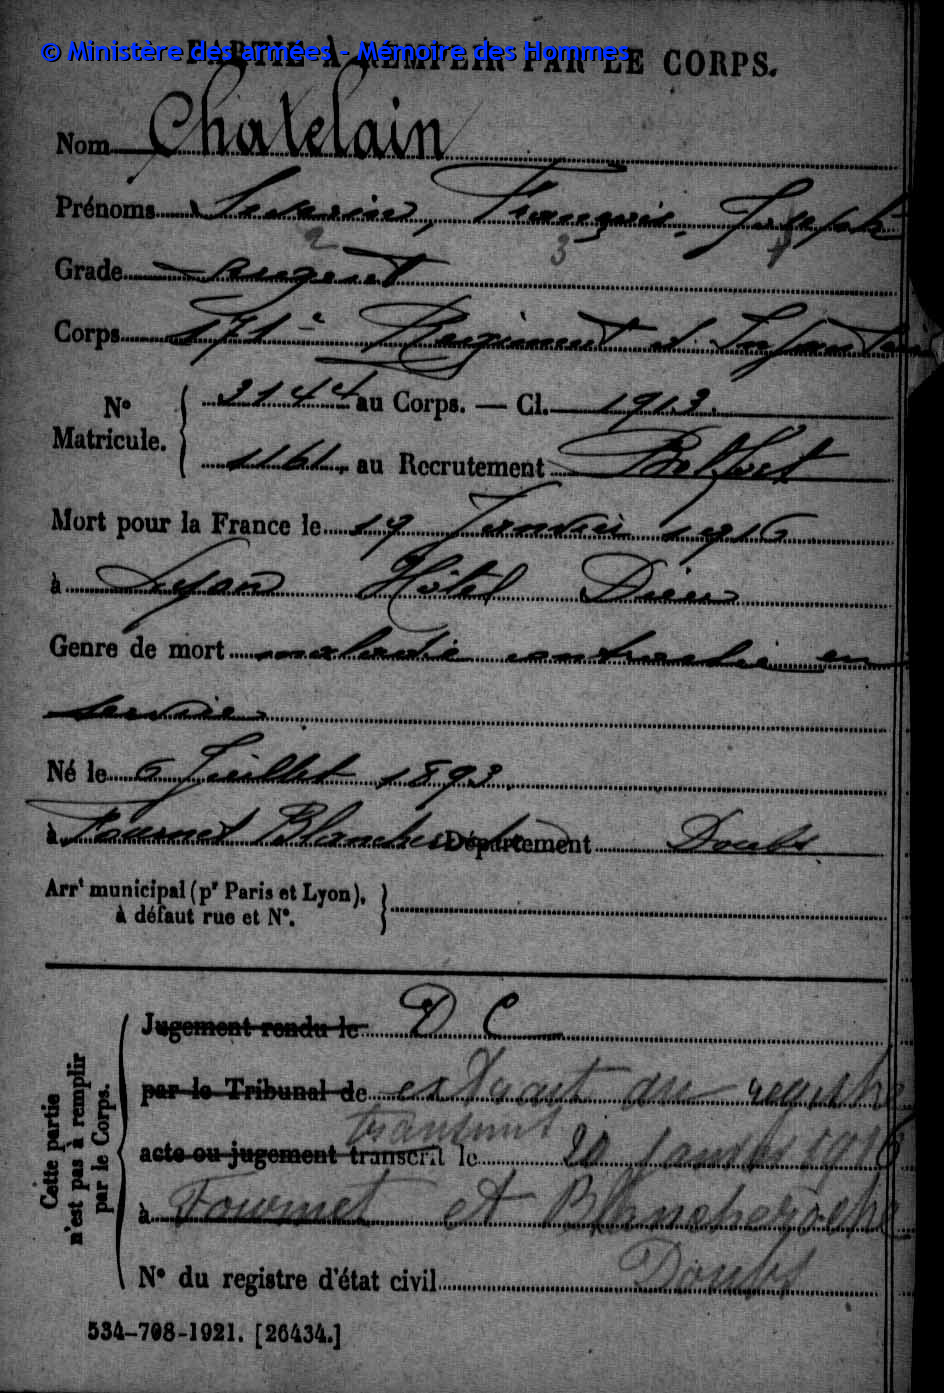 © Ministère des armées - Mémoire des Hommes
PARTIE À REMPLIR PAR LE CORPS.
Nom Chatelain
Prénoms Séverin, François, Joseph
2 3 1
Grade Sergent
Corps 171e Régiment d'Infanterie
No Matricule. 3144 au Corps. — Cl. 1913.
1161. au Recrutement Belfort
Mort pour la France le 19 Janvier 1916
à Lyon Hôtel Dieu
Genre de mort maladie contractée en
service
Né le 6 Juillet 1893
à Fournet Blancheroche Département Doubs
Arrt municipal (pr Paris et Lyon),
à défaut rue et No.
Cette partie n'est pas à remplir par le Corps.
Jugement rendu le D C
par le Tribunal de extrait du registre
transmis
acte ou jugement transcrit le 20 janvier 1916
à Fournet et Blancheroche
No du registre d'état civil Doubs
534-708-1921. [26434.]